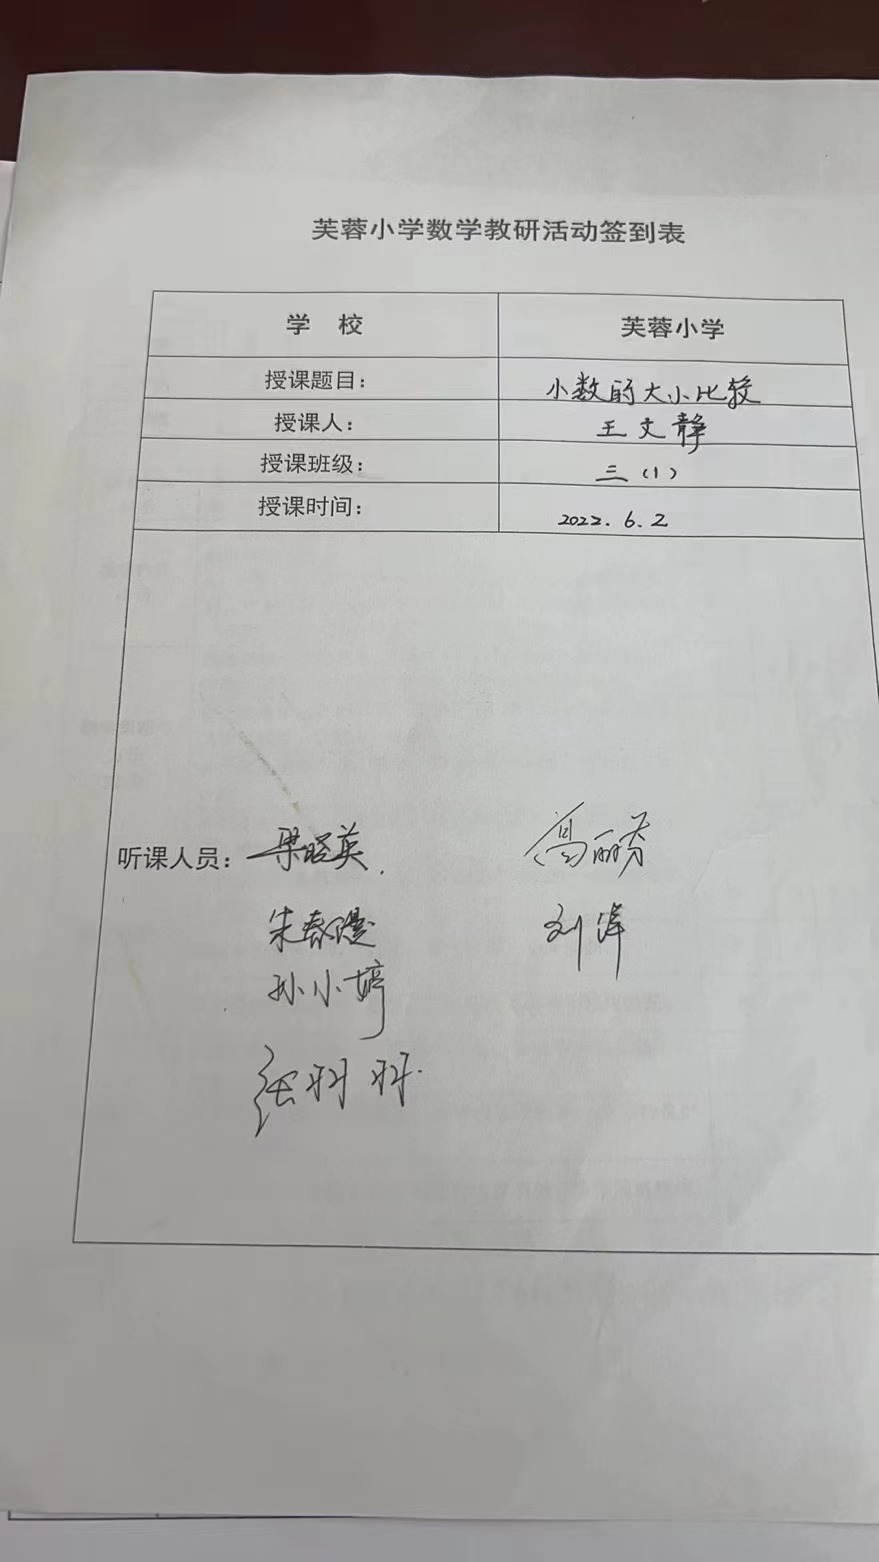 芙蓉小学数学教研活动签到表
学 校 芙蓉小学
授课题目： 小数的大小比较
授课人： 王文静
授课班级： 三（1）
授课时间： 2022.6.2
听课人员： 梁晓英. 高丽芬
朱春 刘萍
孙小婷
张科科.